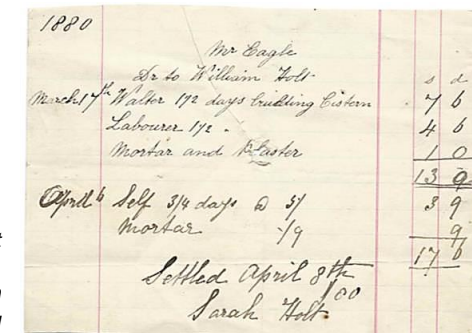 1880
Mr Eagle
Dr to William Holt
s d
March 17th Walter 1 1/2 days building Cistern 7 6
Labourer 1 1/2 " 4 6
Mortar and Plaster 1 0
13 0
April 6 Self 3/4 days @ 5/ 3 9
Mortar -/9 9
17 6
Settled April 8th /80
Sarah Holt